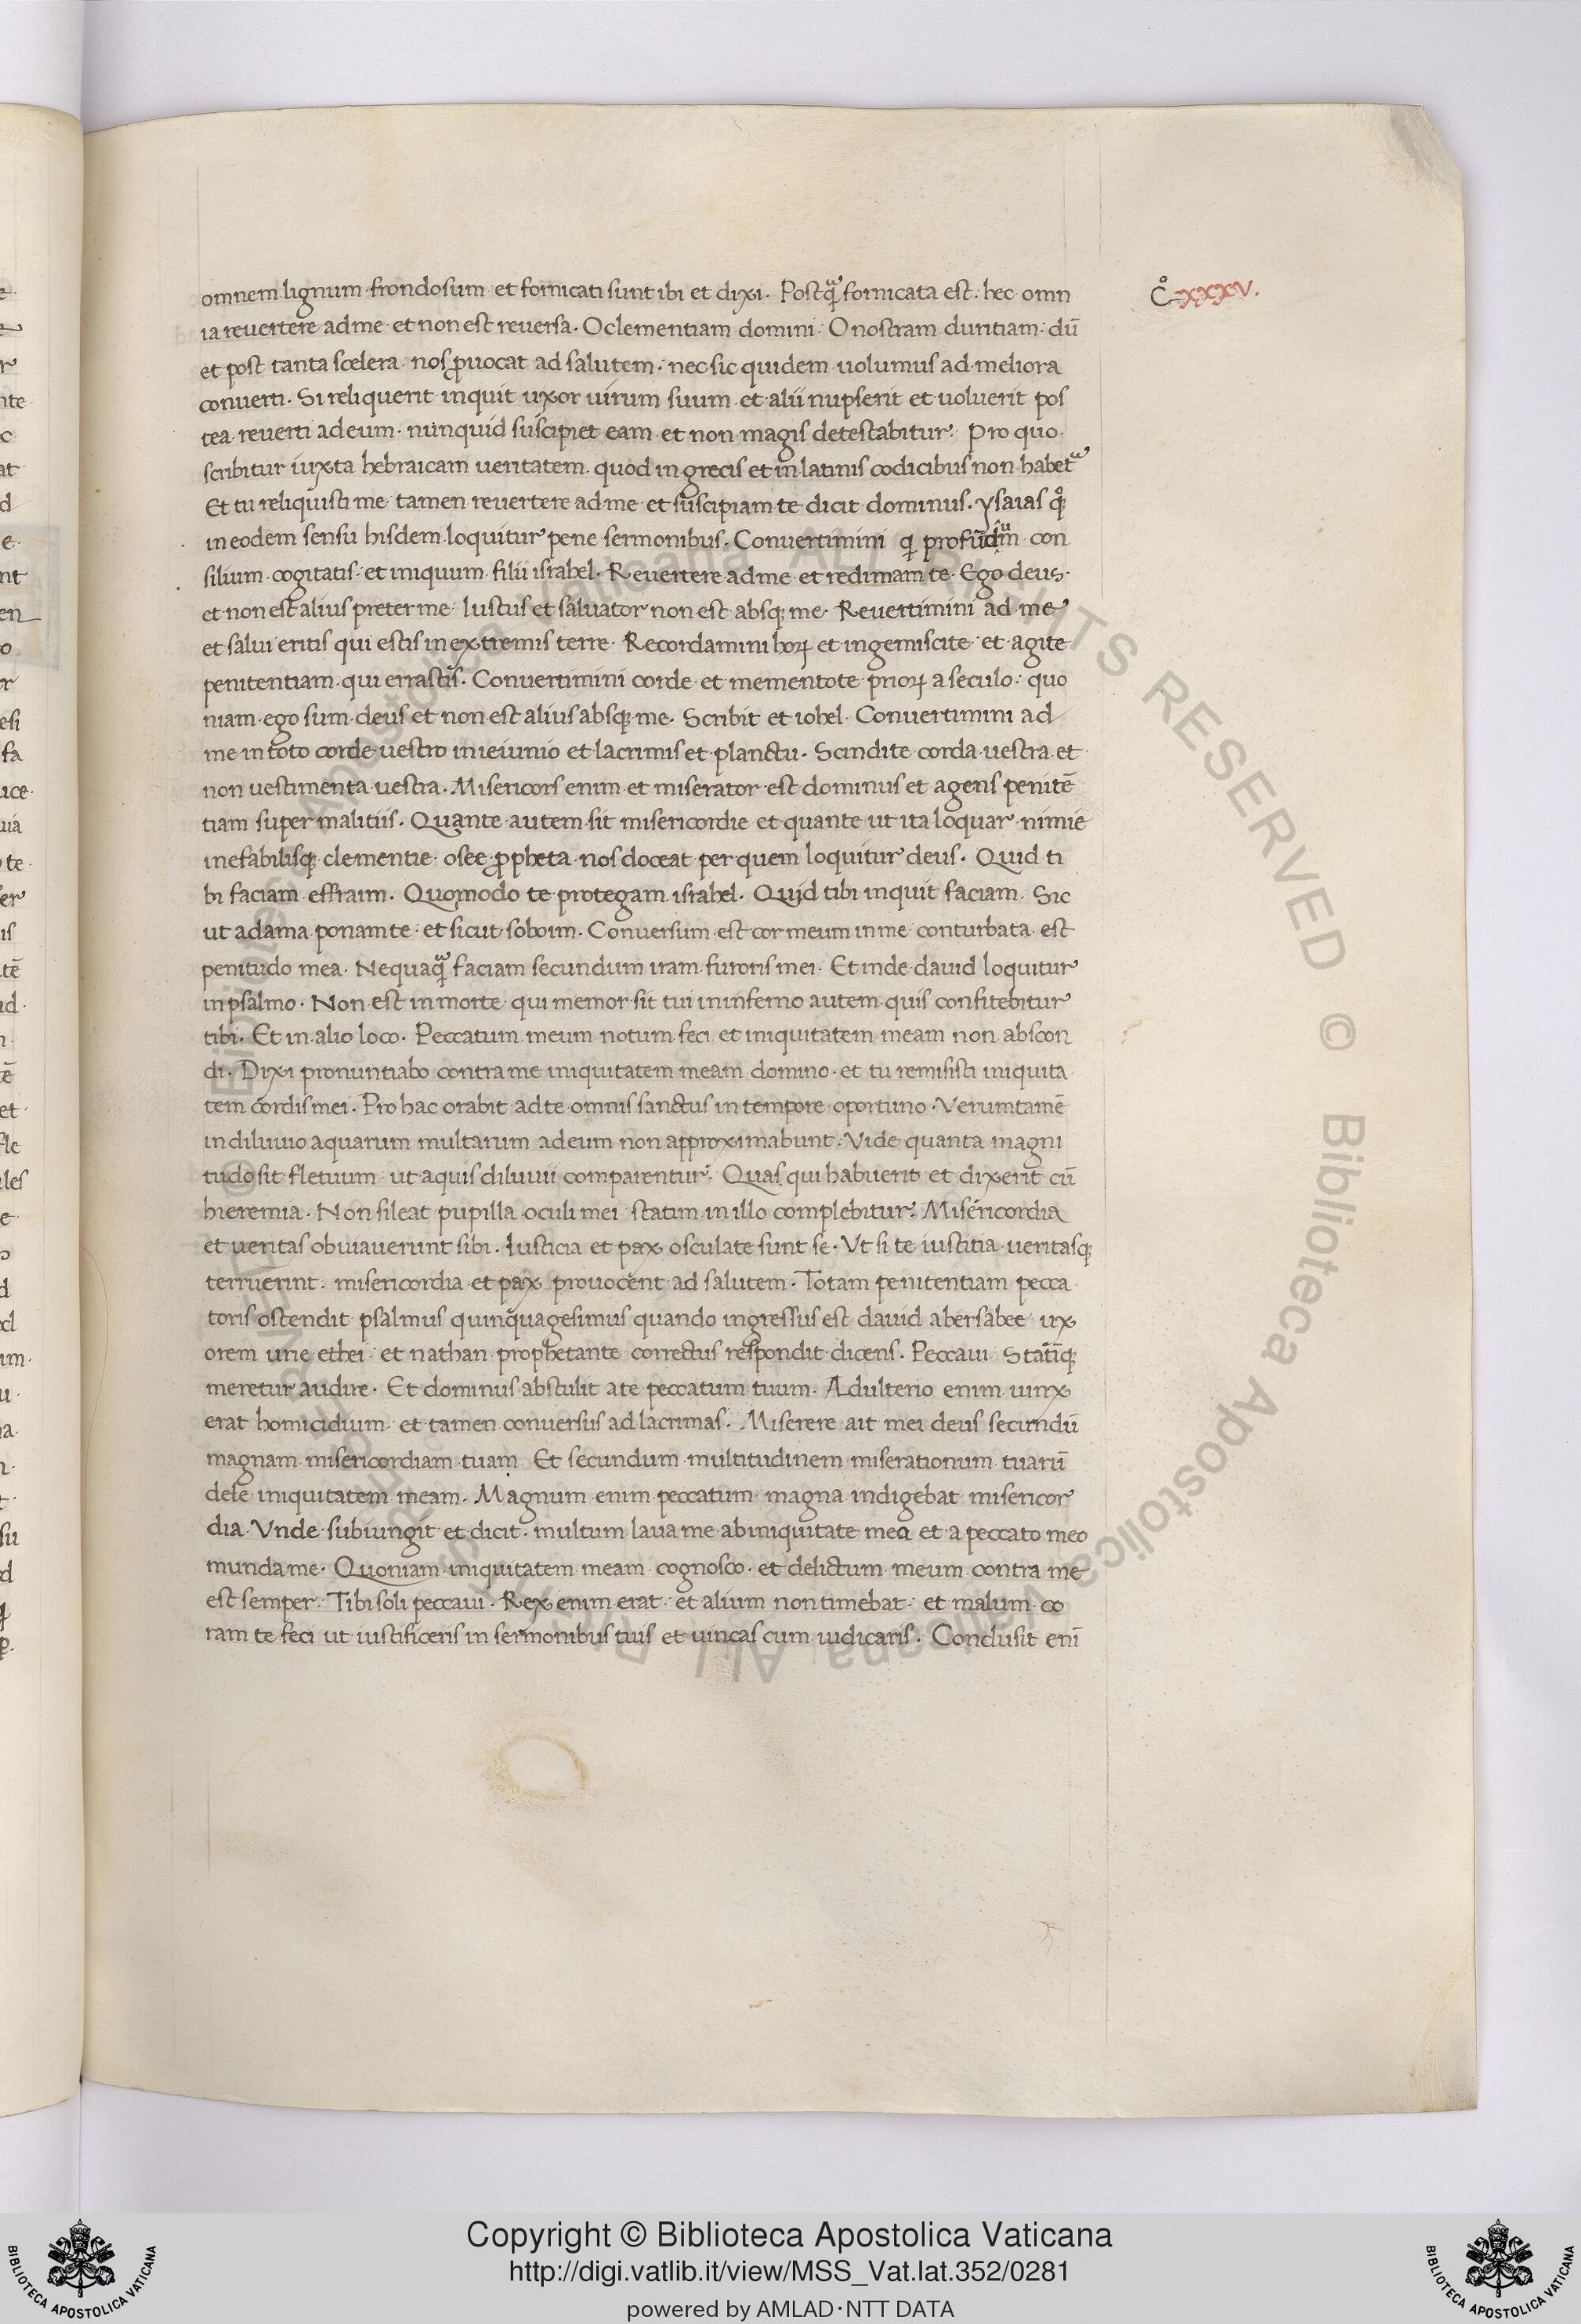 omnem lignum frondosum et fornicati sunt ibi et dixi. Postq̃ᵃ fornicata est. hec omn
ia revertere ad me et non est reversa. O clementiam domini. O nostram duritiam: dũ
et post tanta scelera nos ꝓvocat ad salutem. nec sic quidem volumus ad meliora
converti. Si reliquerit inquit uxor virum suum et alii nupserit et voluerit pos
tea reverti ad eum. nunquid suscipiet eam et non magis detestabitur. Pro quo.
scribitur iuxta hebraicam veritatem. quod in grecis et in latinis codicibus non habet᷑
Et tu reliquisti me tamen revertere ad me et suscipiam te dicit dominus. ysaias qͦꝫ
in eodem sensu hisdem loquitur pene sermonibus. Convertimini q̨ con
silium cogitatis et iniquum filii israhel. Revertere ad me et redimam te. Ego deus.
et non est alius preter me. Iustus et salvator non est absqꝫ me. Revertimini ad me
et salvi eritis qui estis in extremis terre. Recordamini hoꝝ et ingemiscite et agite
penitentiam qui errastis. Convertimini corde et mementote prioꝝ a seculo: quo
niam ego sum deus et non est alius absqꝫ me. Scribit et iohel. Convertimini ad
me in toto corde vestro in ieiunio et lacrimis et planctu. Scindite corda vestra et
non vestimenta vestra. Misericors enim et miserator est dominus et agens penitē
tiam super malitiis. Quante autem sit misericordie et quante ut ita loquar nimie
inefabilisqꝫ clementie osee ꝓpheta nos doceat per quem loquitur deus. Quid ti
bi faciam effraim. Quomodo te protegam israhel. Quid tibi inquit faciam. Sic
ut adama ponam te et sicut soboim. Conversum est cor meum in me conturbata est
penitudo mea. Nequaq̃ᵃ faciam secundum iram furoris mei. Et inde david loquitur
in psalmo. Non est in morte qui memor sit tui in inferno autem quis confitebitur
tibi. Et in alio loco. Peccatum meum notum feci et iniquitatem meam non abscon
di. Dixi pronuntiabo contra me iniquitatem meam domino. et tu remisisti iniquita
tem cordis mei. Pro hac orabit ad te omnis sanctus in tempore oportuno. Verumtamē
in diluvio aquarum multarum ad eum non approximabunt. Vide quanta magni
tudo sit fletuum ut aquis diluvii comparentur. Quas qui habuerit et dixerit cū
hieremia. Non sileat pupilla oculi mei statim in illo complebitur. Misericordia
et veritas obviaverunt sibi. Iusticia et pax osculate sunt se. Ut si te iustitia veritasqꝫ
terruerint. misericordia et pax provocent ad salutem. Totam penitentiam pecca
toris ostendit psalmus quinquagesimus quando ingressus est david a bersabee ux
orem urie ethei et nathan prophetante correctus respondit dicens. Peccavi Statīqꝫ
meretur audire. Et dominus abstulit a te peccatum tuum. Adulterio enim uinx
erat homicidium et tamen conversus ad lacrimas. Miserere ait mei deus secundū
magnam misericordiam tuam Et secundum multitudinem miserationum tuarū
dele iniquitatem meam. Magnum enim peccatum magna indigebat misericor
dia. Unde subiungit et dicit. multum lava me ab iniquitate mea et a peccato meo
munda me. Quoniam iniquitatem meam cognosco. et delictum meum contra me
est semper. Tibi soli peccavi. Rex enim erat et alium non timebat. et malum co
ram te feci ut iustificeris in sermonibus tuis et vincas cum iudicaris. Conclusit enī
C̊ XXXV.
Copyright © Biblioteca Apostolica Vaticana
http://digi.vatlib.it/view/MSS_Vat.lat.352/0281
powered by AMLAD·NTT DATA
BIBLIOTECA APOSTOLICA VATICANA
BIBLIOTECA APOSTOLICA VATICANA